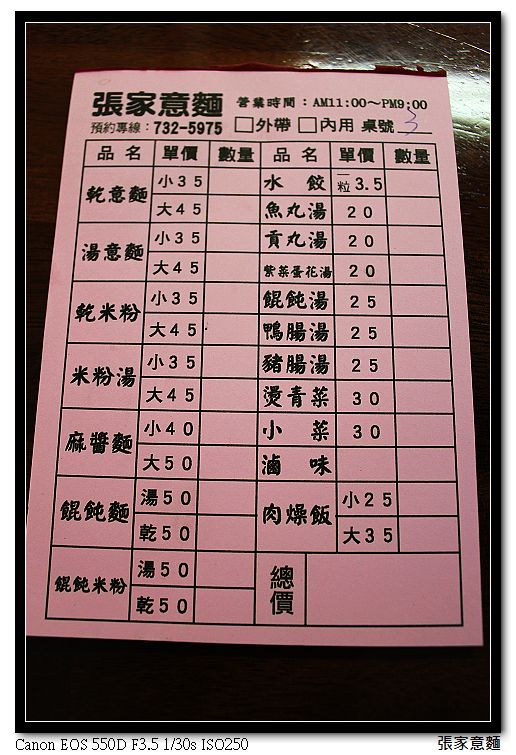 張家意麵 營業時間：AM11:00～PM9:00
預約專線：732-5975 □外帶 □內用 桌號 3
品名 單價 數量 品名 單價 數量
乾意麵 小35 水餃 一粒 3.5
大45 魚丸湯 20
湯意麵 小35 貢丸湯 20
大45 紫菜蛋花湯 20
乾米粉 小35 餛飩湯 25
大45 鴨腸湯 25
米粉湯 小35 豬腸湯 25
大45 燙青菜 30
麻醬麵 小40 小菜 30
大50 滷味
餛飩麵 湯50 肉燥飯 小25
乾50 大35
餛飩米粉 湯50 總價
乾50
Canon EOS 550D F3.5 1/30s ISO250 張家意麵